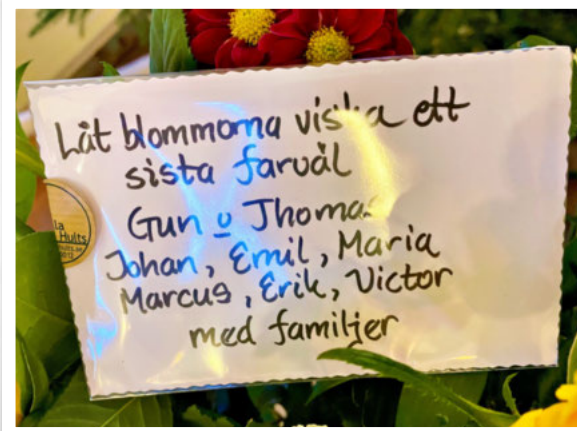 Låt blommorna viska ett
sista farväl
Gun o Thomas
Johan, Emil, Maria
Marcus, Erik, Victor
med familjer
la
Hults